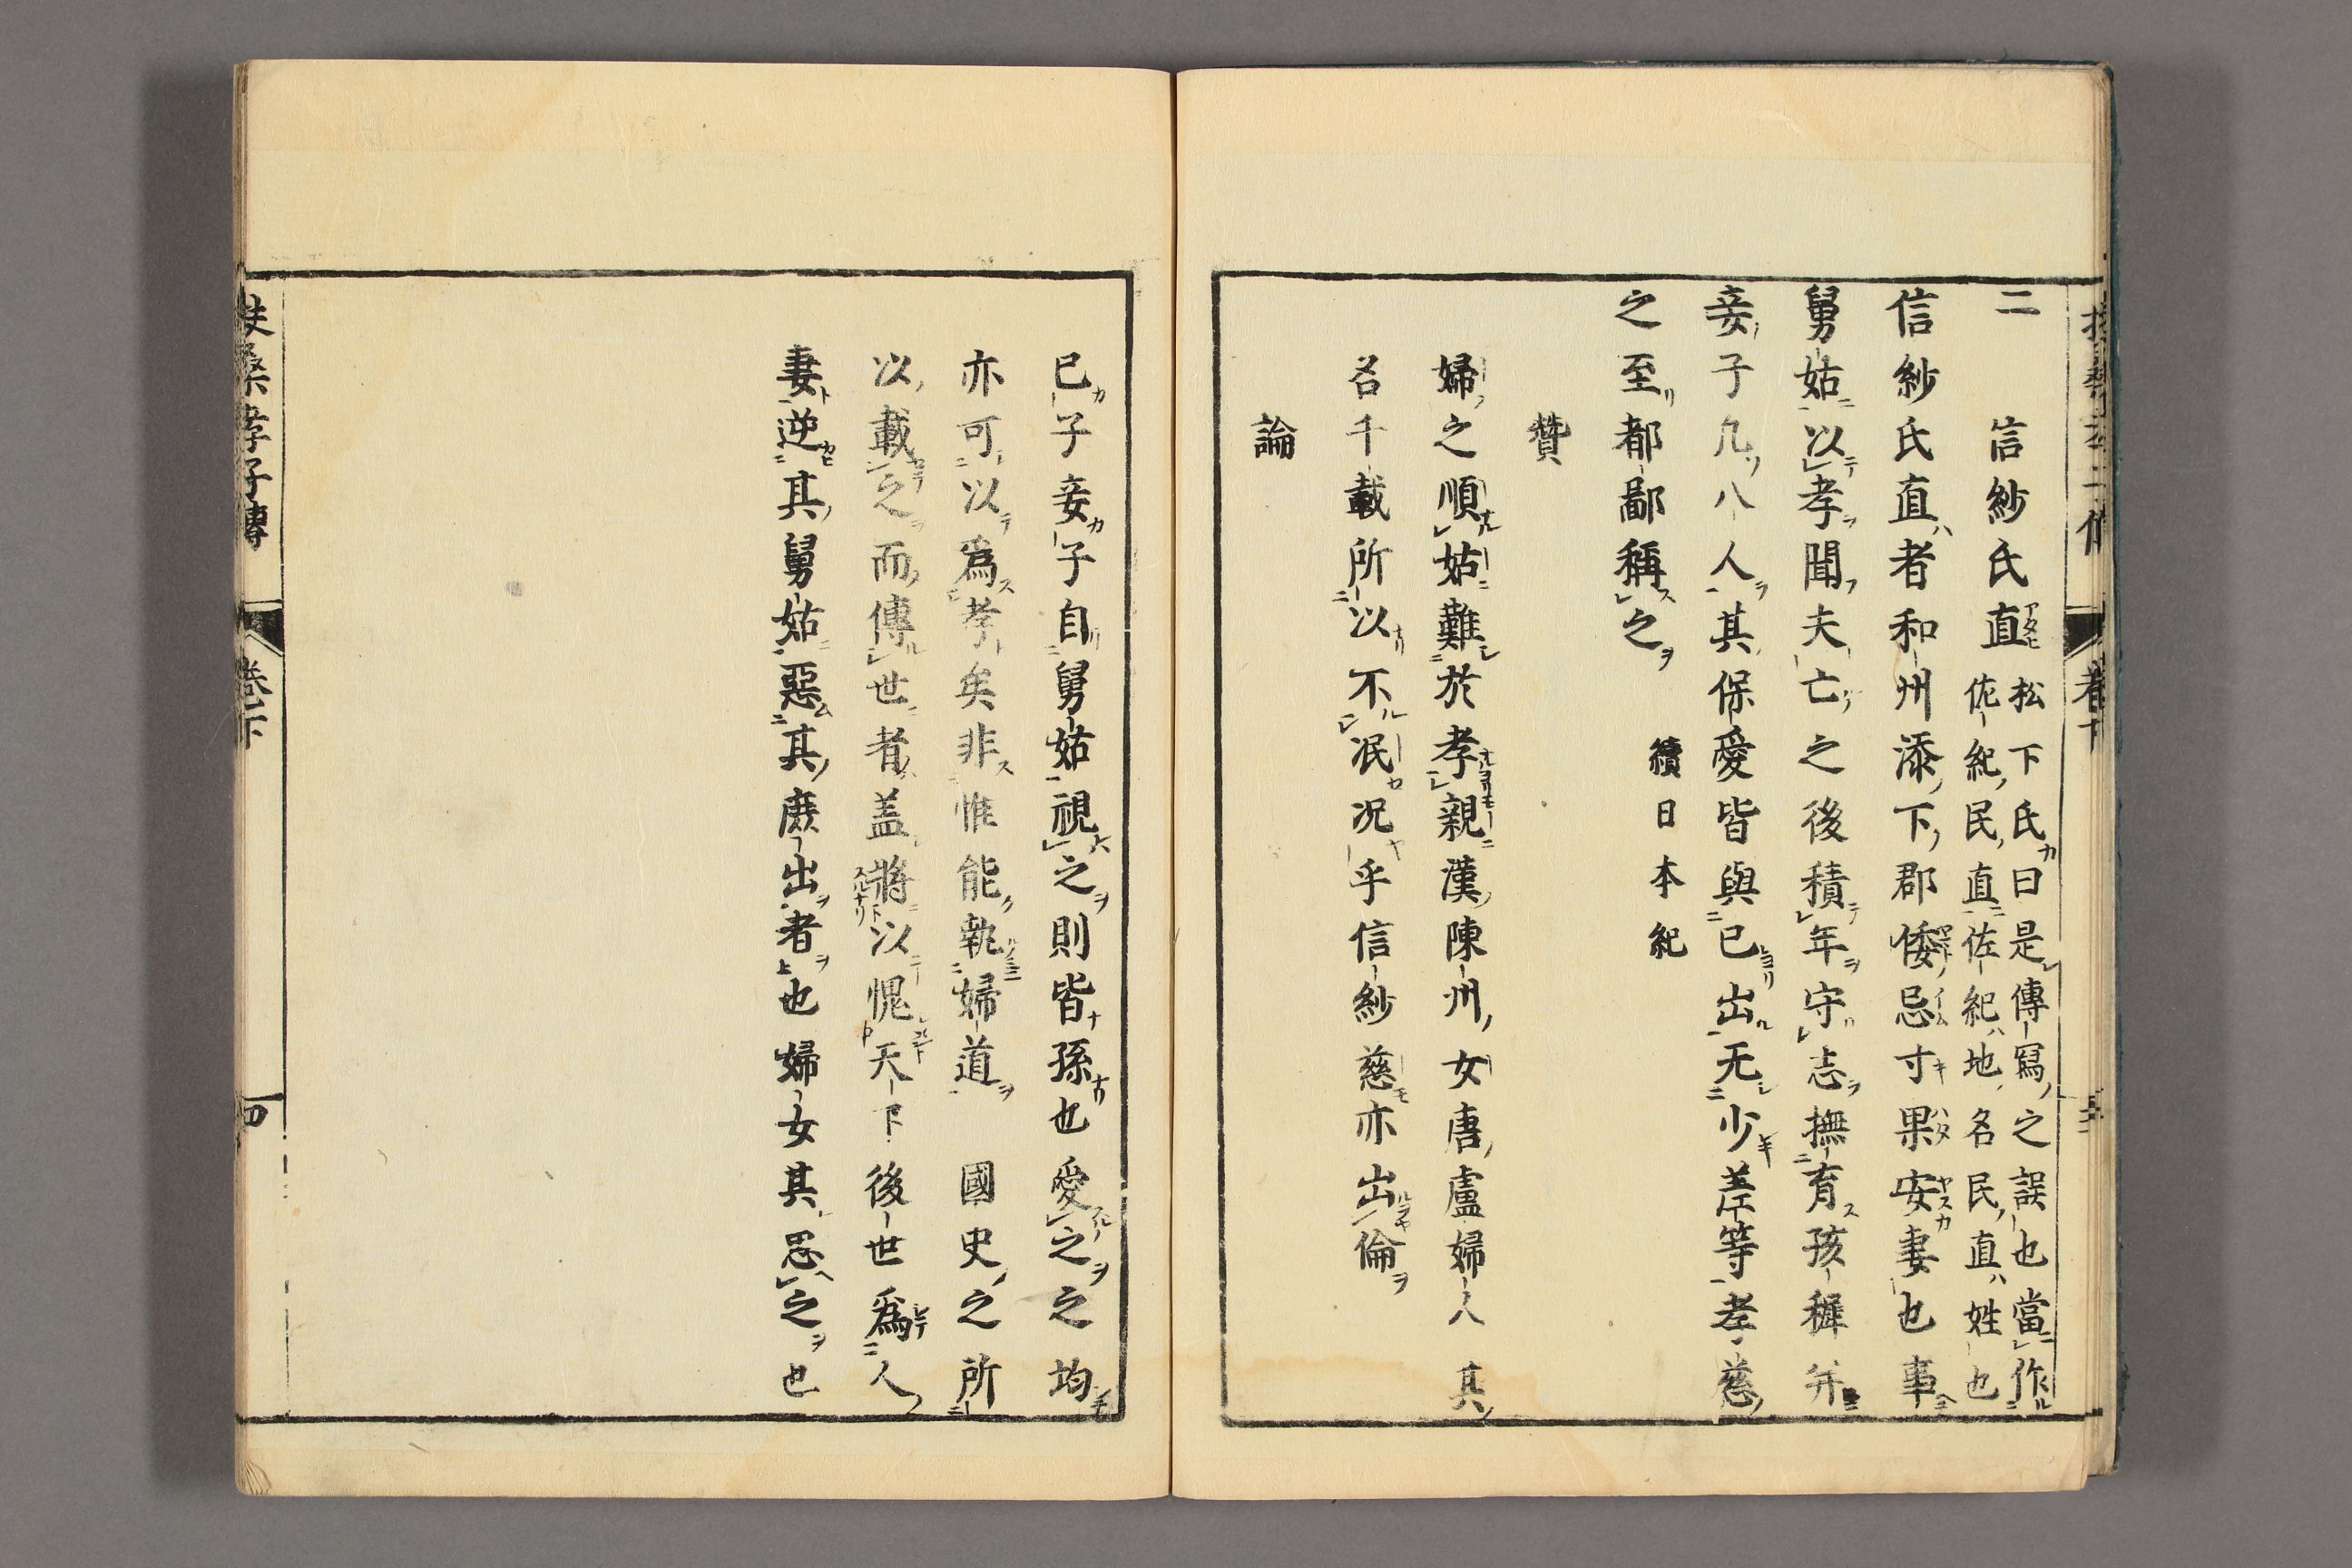 二　信紗氏直
松下氏曰是傳寫之誤也當作
佐紀民直佐紀地名民直姓也
信紗氏直者和州添下郡倭忌寸果安妻也事
舅姑以孝聞夫亡之後積年守志撫育孩穉幷
妾子凡八人其保愛皆與己出无少差等孝慈
之至都鄙稱之　續日本紀
贊
婦之順姑難於孝親漢陳州女唐盧婦人其
名千載所以不泯况乎信紗慈亦出倫
論
己子妾子自舅姑視之則皆孫也愛之之均
亦可以爲孝矣非惟能執婦道　國史之所
以載之而傳世者盖將以愧天下後世爲人
妻逆其舅姑惡其庶出者也婦女其忍之也
扶桑孝子傳　卷下　四